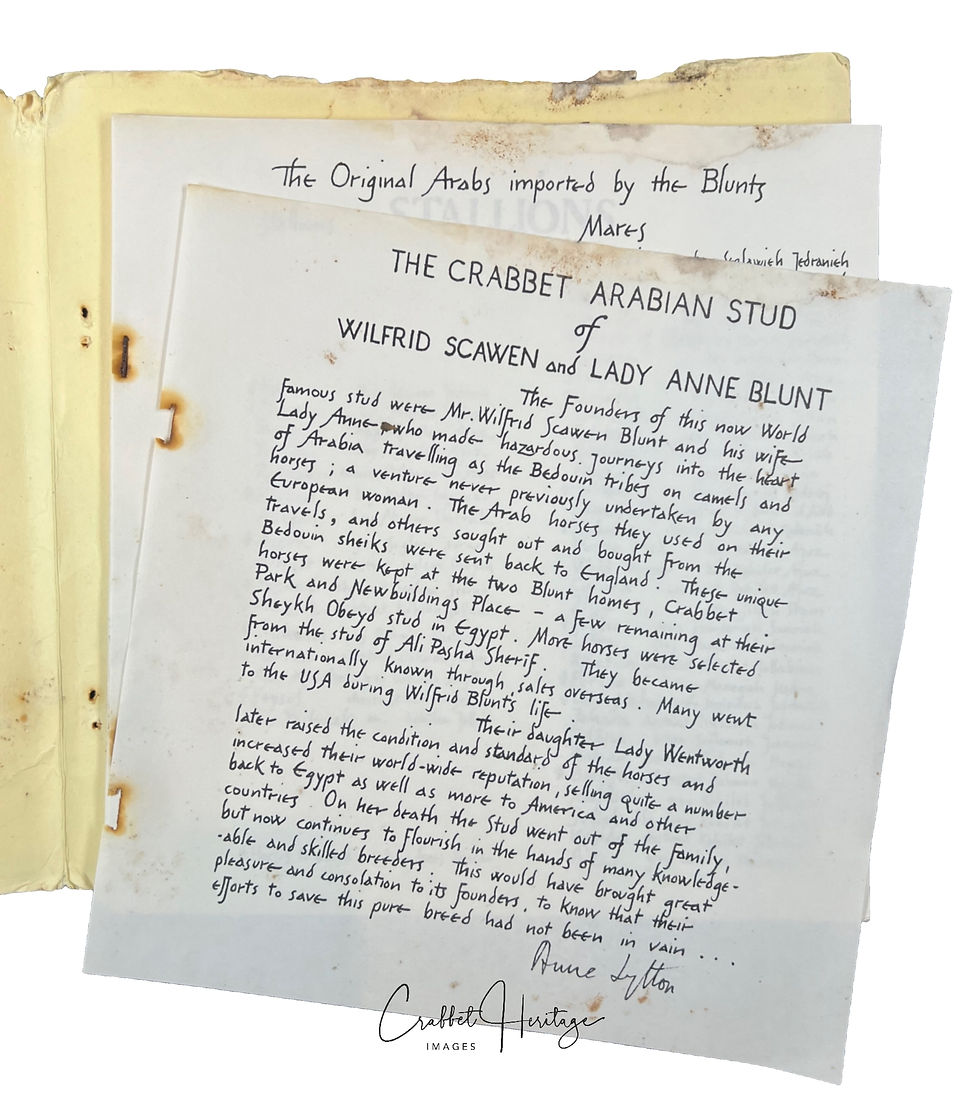 The Original Arabs imported by the Blunts
Mares
Jedranieh
THE CRABBET ARABIAN STUD
of
WILFRID SCAWEN and LADY ANNE BLUNT
The Founders of this now World
famous stud were Mr. Wilfrid Scawen Blunt and his wife
Lady Anne, who made hazardous journeys into the heart
of Arabia travelling as the Bedouin tribes on camels and
horses ; a venture never previously undertaken by any
European woman. The Arab horses they used on their
travels, and others sought out and bought from the
Bedouin sheiks were sent back to England. These unique
horses were kept at the two Blunt homes, Crabbet
Park and Newbuildings Place - a few remaining at their
Sheykh Obeyd stud in Egypt. More horses were selected
from the stud of Ali Pasha Sherif. They became
internationally known through sales overseas. Many went
to the USA during Wilfrid Blunt's life.
Their daughter Lady Wentworth
later raised the condition and standard of the horses and
increased their world-wide reputation, selling quite a number
back to Egypt as well as more to America and other
countries. On her death the Stud went out of the family,
but now continues to flourish in the hands of many knowledge-
-able and skilled breeders. This would have brought great
pleasure and consolation to its founders, to know that their
efforts to save this pure breed had not been in vain ...
Anne Lytton
Crabbet Heritage
IMAGES